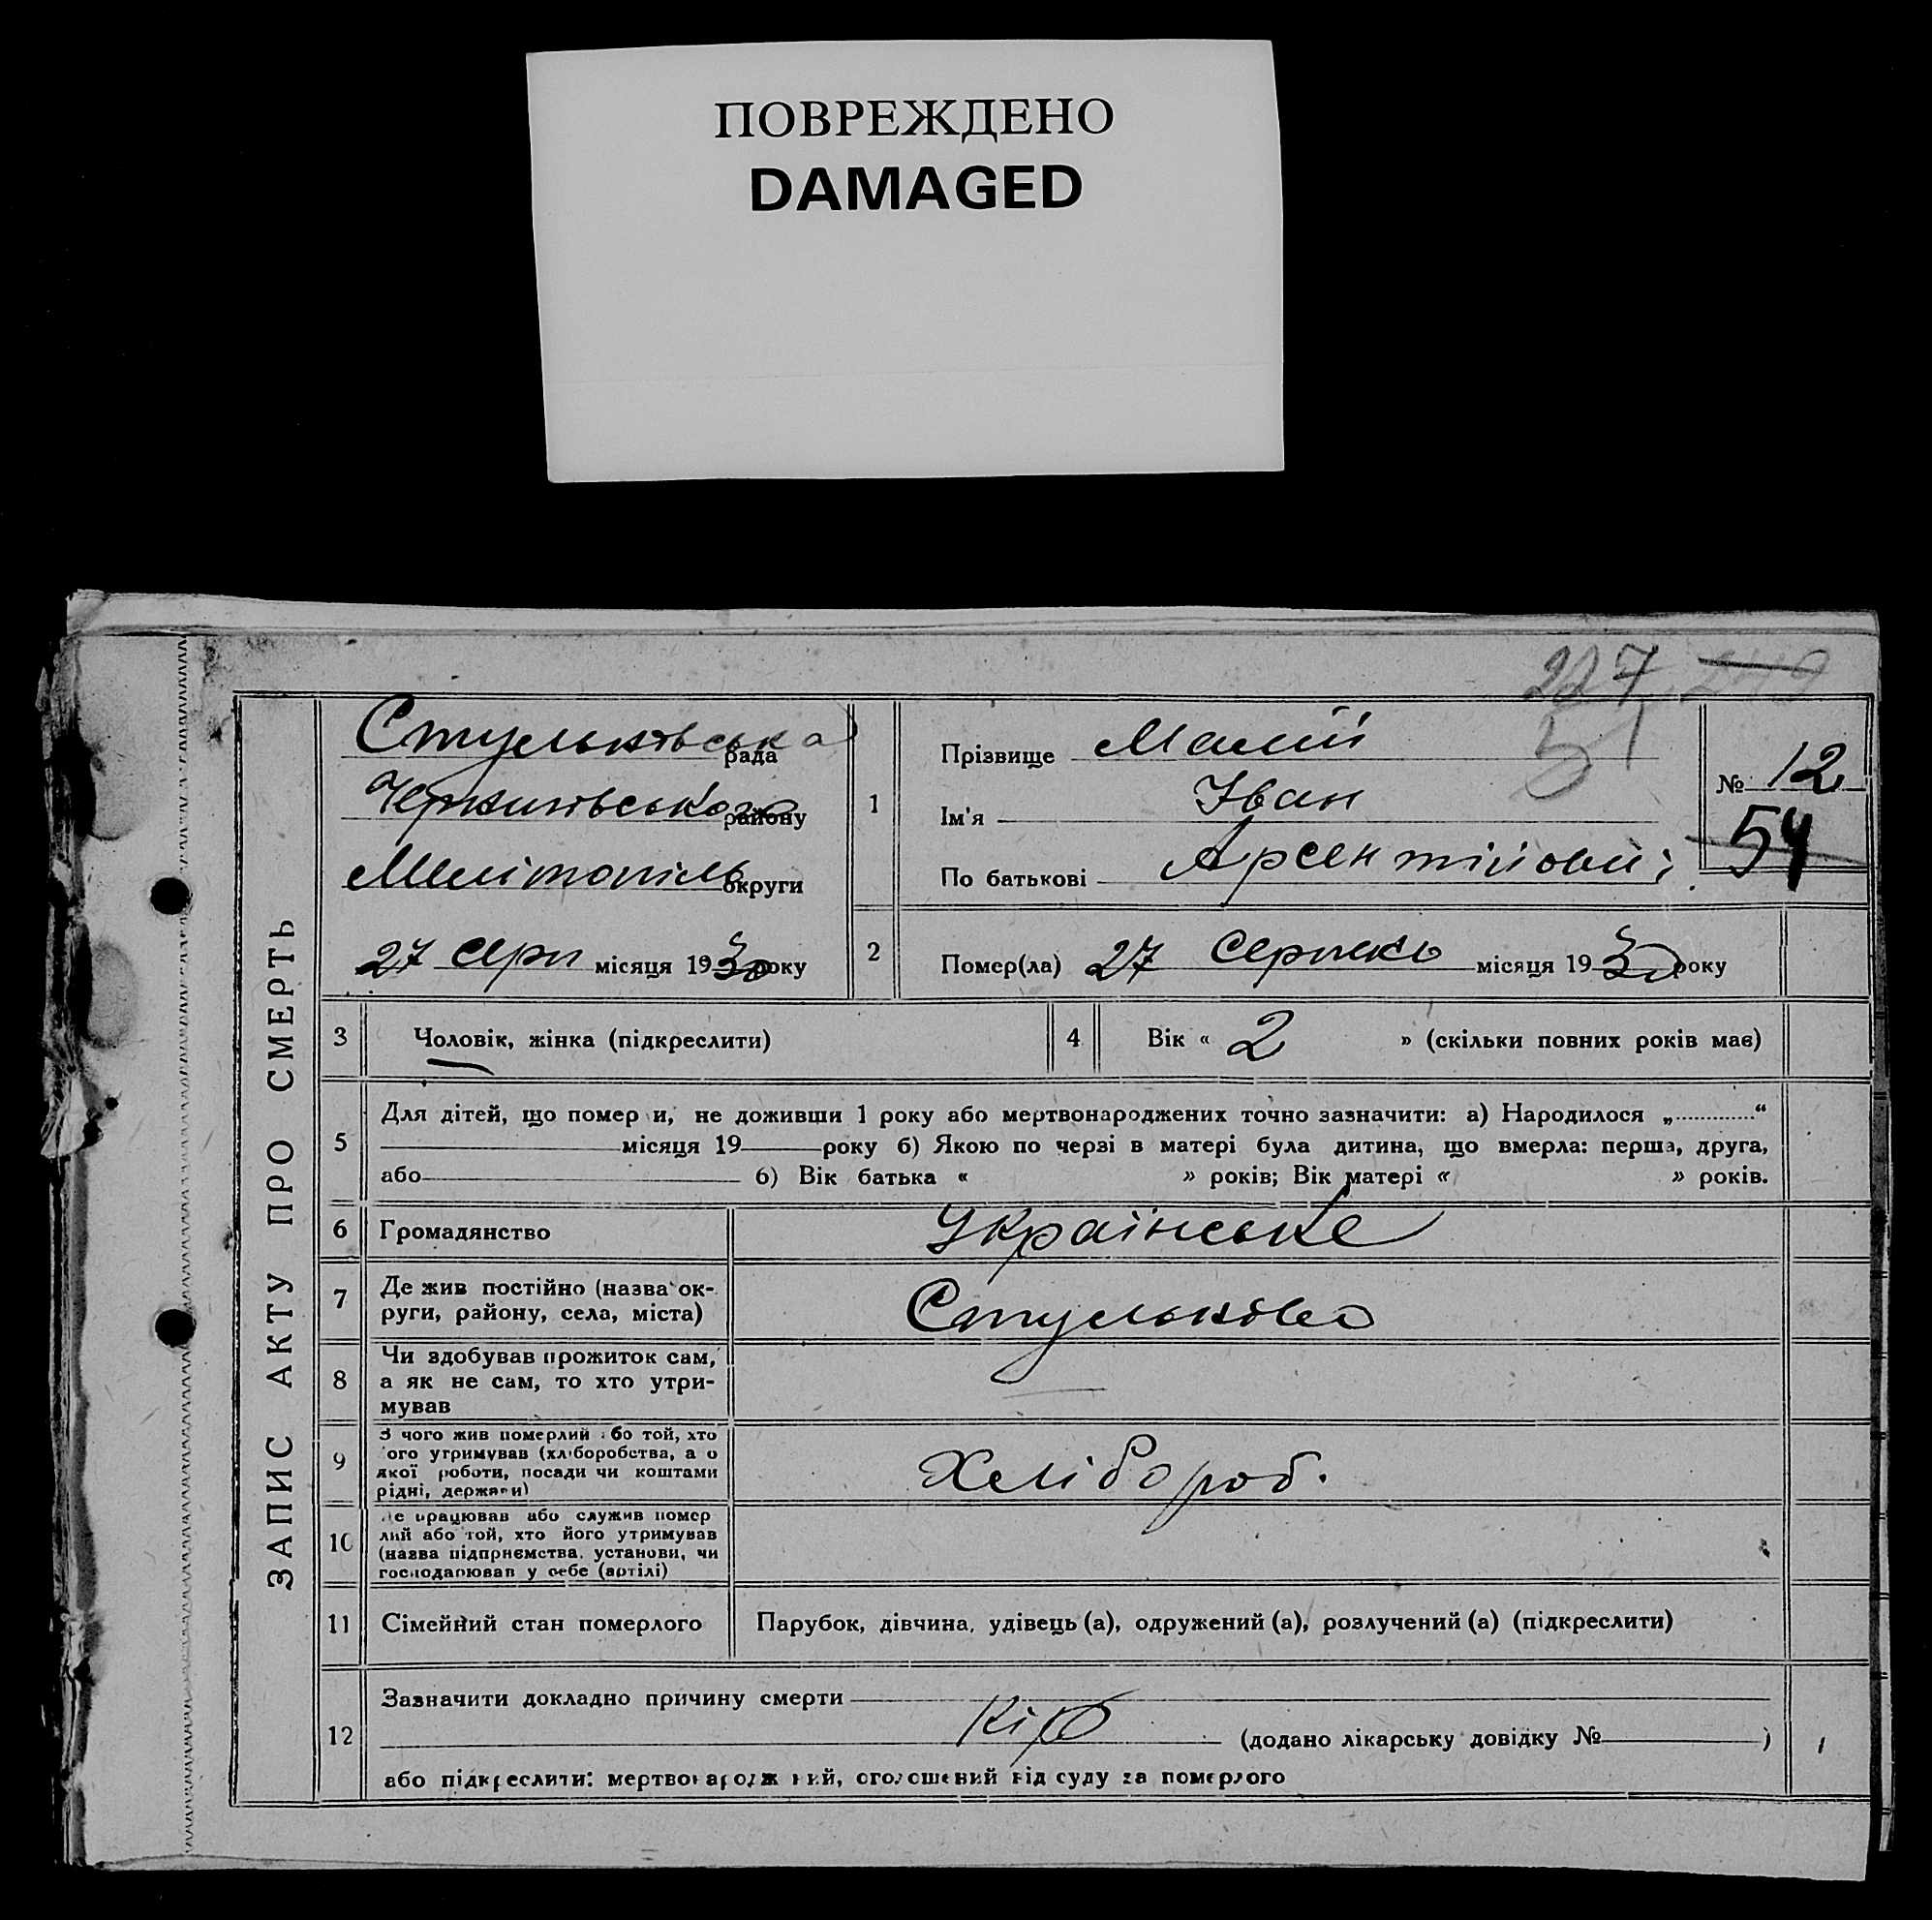 ПОВРЕЖДЕНО
DAMAGED
227
51
ЗАПИС АКТУ ПРО СМЕРТЬ
Стульнівська рада
району
Мелітопіль округи
27 серп місяця 1930 року
1
Прізвище Малий
Ім'я Іван
По батькові Арсентійович
№ 12
54
2
Помер(ла) 27 Серпень місяця 1930 року
3 Чоловік, жінка (підкреслити)
4 Вік « 2 » (скільки повних років має)
5
Для дітей, що помер и, не доживши 1 року або мертвонароджених точно зазначити: а) Народилося „ “
місяця 19 року б) Якою по черзі в матері була дитина, що вмерла: перша, друга,
або б) Вік батька « » років; Вік матері « » років.
6 Громадянство Українське
7 Де жив постійно (назва ок-
руги, району, села, міста)
Стульново
8 Чи здобував прожиток сам,
а як не сам, то хто утри-
мував
9 З чого жив померлий або той, хто
ого утримував (хліборобства, а о
якої роботи, посади чи коштами
рідні, держави)
Хлібороб.
10 е працював або служив помер
лий або той, хто його утримував
(назва підприємства, установи, чи
господарював у себе (артілі)
11 Сімейний стан померлого Парубок, дівчина, удівець (а), одружений (а), розлучений (а) (підкреслити)
12 Зазначити докладно причину смерти
Кір
(додано лікарську довідку № )
або підкреслити: мертвонароджений, оголошений від суду за померлого